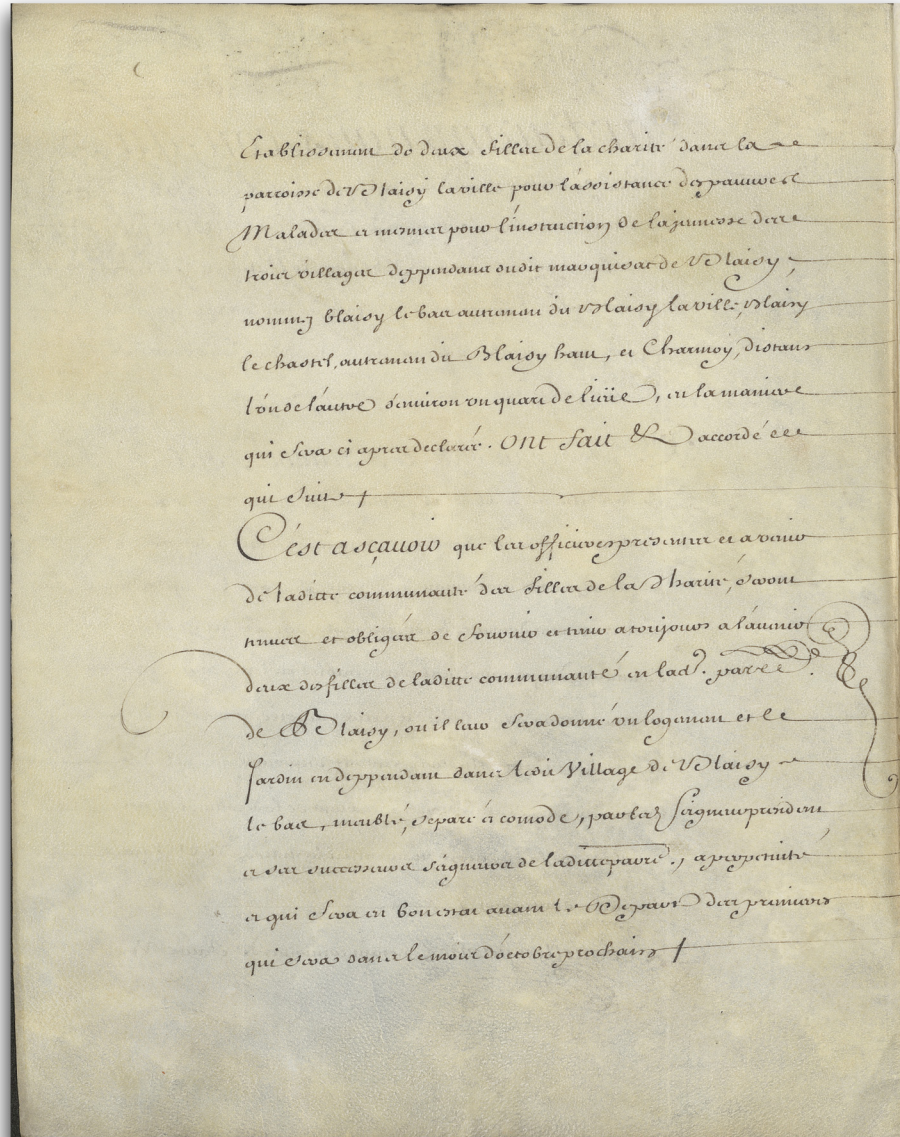 Etablissement de deux filles de la charité dans la
parroisse de Blaisy la ville pour l'assistance des pauvres
Malades et mesmes pour l'instruction de la jeunesse des
trois villages deppendans dudit marquisat de Blaisy,
nommez blaisy le bas autrement dit Blaisy la ville, Blaisy
le chastel, autrement dit Blaisy haut, et Charmoy, distans
l'un de l'autre d'environ un quart de lieüe, en la maniere
qui sera ci apres declarée. Ont fait & accordé ce
qui suit
C'est a sçavoir que les officieres presentes et a venir
de laditte communauté des filles de la Charité, seront
tenues et obligées de fournir et tenir a toujours a l'avenir
deux des filles de laditte communauté en lad. parr.
de Blaisy, ou il leur sera donné un logement et le
Jardin en deppendant dans led. Village de Blaisy
le bas, meublé, separé et comode, par led. Seigneur president
et ses successeurs seigneurs de laditte parre., a perpetuité
et qui sera en bon estat avant le Depart des premieres
qui sera dans le mois d'octobre prochain